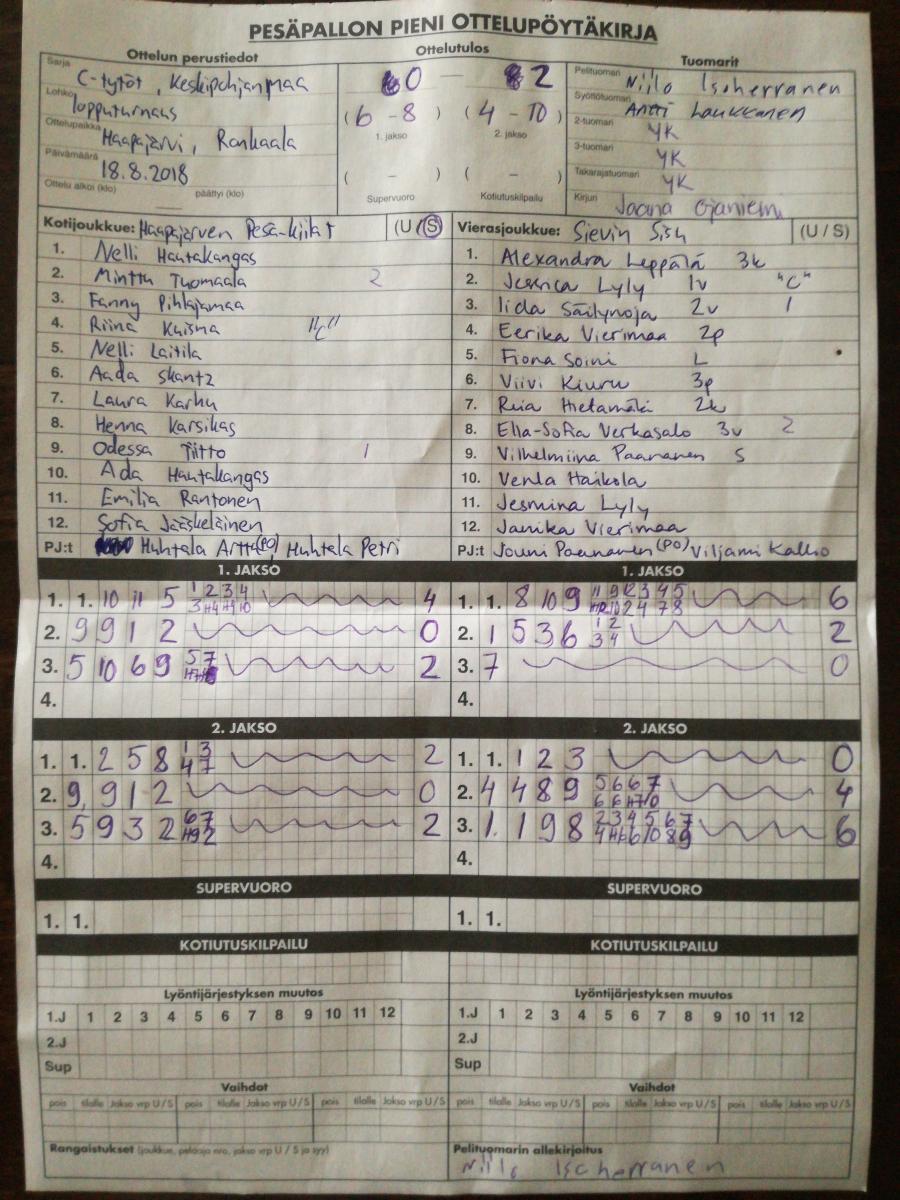 PESÄPALLON PIENI OTTELUPÖYTÄKIRJA
Ottelun perustiedot
Sarja C-tytöt, Keskipohjanmaa
Lohko lopputurnaus
Ottelupaikka Haapajärvi, Rankaala
Päivämäärä 18.8.2018
Ottelu alkoi (klo) päättyi (klo)
Ottelutulos
0 — 2
(6 - 8) (4 - 10)
1. jakso 2. jakso
( - ) ( - )
Supervuoro Kotiutuskilpailu
Tuomarit
Pelituomari Niilo Isoherranen
Syöttötuomari Antti Laukkanen
2-tuomari YK
3-tuomari YK
Takarajatuomari YK
Kirjuri Jaana Ojaniemi
Kotijoukkue: Haapajärven Pesä-kiilat (U / S)
1. Nelli Hautakangas
2. Minttu Tuomaala 2
3. Fanny Pihlajamaa
4. Riina Kuisma "C"
5. Nelli Laitila
6. Aada Skantz
7. Laura Karhu
8. Henna Karsikas
9. Odessa Tiitto 1
10. Ada Hautakangas
11. Emilia Rantonen
12. Sofia Jääskeläinen
PJ:t Huhtala Arttu (PO), Huhtala Petri
Vierasjoukkue: Sievin Sisu (U / S)
1. Alexandra Leppälä 3k
2. Jessica Lyly 1v "C"
3. Iida Säilynoja 2v 1
4. Eerika Vierimaa 2p
5. Fiona Soini L
6. Viivi Kiuru 3p
7. Riia Hietamäki 2k
8. Ella-Sofia Verkasalo 3v 2
9. Vilhelmiina Paananen S
10. Venla Haikola
11. Jesmina Lyly
12. Janika Vierimaa
PJ:t Jouni Paananen (PO) Viljami Kallio
1. JAKSO
1. 1. 10 11 5 1 2 3 4 4
3 H4 H9 10
2. 9 9 1 2 0
3. 5 10 6 9 5 7 2
4.
1. JAKSO
1. 1. 8 10 9 11 9 12 3 4 5 6
2 4 7 8
2. 1 5 3 6 1 2 2
3 4
3. 7 0
4.
2. JAKSO
1. 1. 2 5 8 1 3 2
4 7
2. 9, 9 1 2 0
3. 5 9 3 2 6 7 2
H9 2
4.
2. JAKSO
1. 1. 1 2 3 0
2. 4 4 8 9 5 6 6 7 4
6 6 H7 10
3. 1. 1 9 8 2 3 4 5 6 7 6
4 H6 6 10 8 9
4.
SUPERVUORO
1. 1.
SUPERVUORO
1. 1.
KOTIUTUSKILPAILU
KOTIUTUSKILPAILU
Lyöntijärjestyksen muutos
1.J 1 2 3 4 5 6 7 8 9 10 11 12
2.J
Sup
Lyöntijärjestyksen muutos
1.J 1 2 3 4 5 6 7 8 9 10 11 12
2.J
Sup
Vaihdot
pois tilalle Jakso vrp U / S pois tilalle Jakso vrp U / S pois tilalle Jakso vrp U / S
Vaihdot
pois tilalle Jakso vrp U / S pois tilalle Jakso vrp U / S pois tilalle Jakso vrp U / S
Rangaistukset (joukkue, pelaaja nro, jakso vrp U / S ja syy)
Pelituomarin allekirjoitus
Niilo Isoherranen